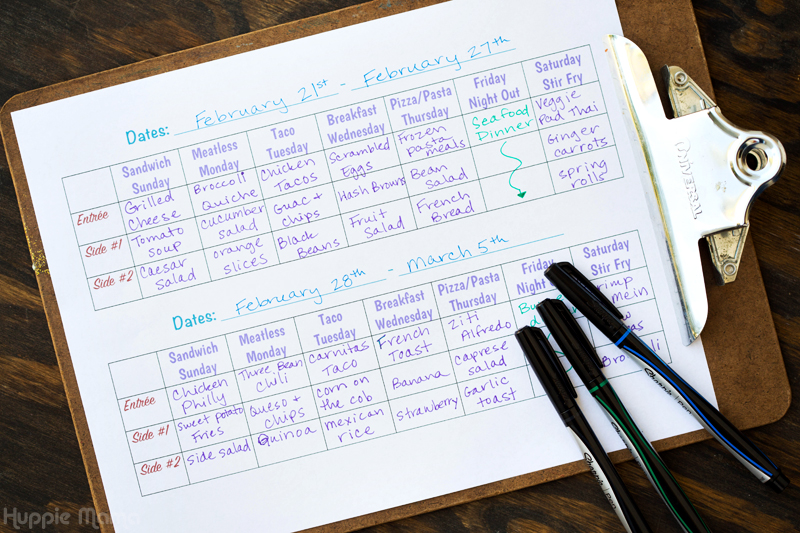 Dates: February 21st - February 27th
Sandwich Sunday Meatless Monday Taco Tuesday Breakfast Wednesday Pizza/Pasta Thursday Friday Night Out Saturday Stir Fry
Entrée Grilled Cheese Broccoli Quiche Chicken Tacos Scrambled Eggs Frozen pasta meals Seafood Dinner Veggie Pad Thai
Side #1 Tomato soup cucumber salad Guac + Chips Hash Browns Bean Salad Ginger carrots
Side #2 Caesar salad orange slices Black Beans Fruit Salad French Bread spring rolls
Dates: February 28th - March 5th
Sandwich Sunday Meatless Monday Taco Tuesday Breakfast Wednesday Pizza/Pasta Thursday Friday Night Saturday Stir Fry
Entrée Chicken Philly Three Bean Chili Carnitas Taco French Toast Ziti Alfredo Mein
Side #1 sweet potato Fries Queso + Chips corn on the cob Banana Caprese salad
Side #2 Side salad Quinoa mexican rice strawberry Garlic toast
UNIVERSAL
Huppie Mama